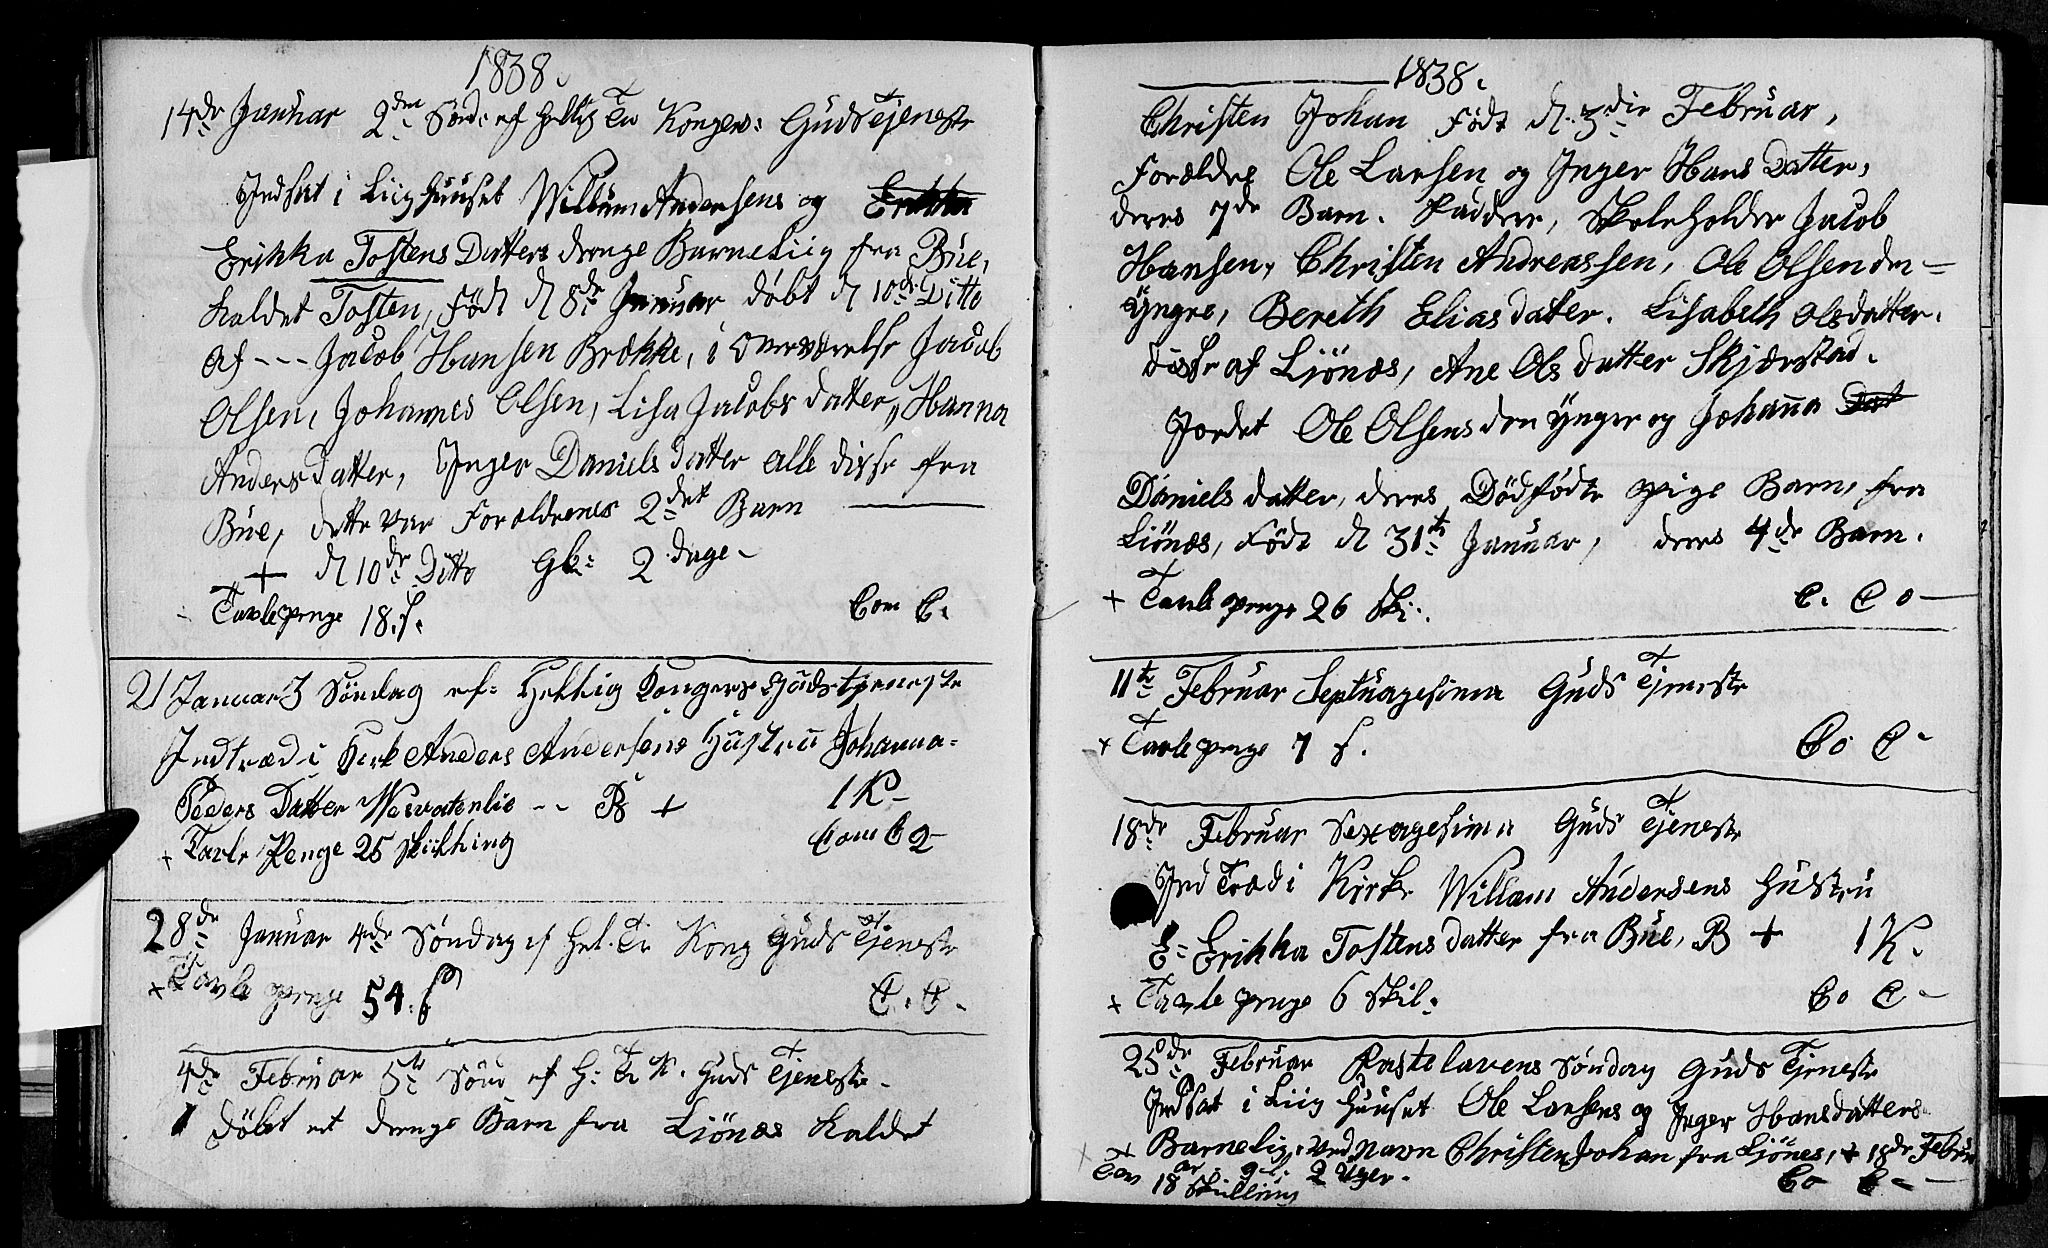 1838.
14de Januar 2den Sønd: ef Hellig Tre Kongers: Guds Tjeneste
Indsat i Liig Huuset Willum Andersens og Erikka
Erikka Tostens Datters drenge Barneliig fra Bue,
kaldet Tosten, Födt d 8de Januar döbt d 10de Ditto
af --- Jacob Hansen Brekke, i Overværelse Jacob
Olsen, Johannes Olsen, Lisa Jacobs datter, Hanna
Anders datter, Inger Daniels datter alle disse fra
Bue, dette var Forældrenes 2det Barn
+ d 10de Ditto Gl: 2 dage-
Tavlepenge 18. s.
Com C.
21 Januar 3 Söndag ef: Hellig Kongers Guds tjeneste
Indtræd i Kirk Anders Andersens Hustru Johanna=
Peders Datter Wesvatenlie -- B + 1 K-
+ Tavle Penge 25 skilling Com C 2-
28de Januar 4de Söndag ef Hel. Tre Kong Guds Tjeneste
+ Tavle penge 54. s C. C.
4de Februar 5te Sönd ef H: Tr K. Guds Tjeneste-
1 döbt et drenge Barn fra Ljönæs kaldet
1838.
Christen Johan Födt d. 3die Februar,
Forældre Ole Larsen og Inger Hans Datter,
deres 7de Barn. Faddere, Skoleholder Jacob
Hansen, Christen Andreassen, Ole Olsen den-
Yngre, Bereth Elias datter. Lisabeth Olsdatter.
disse af Ljönæs, Ane Ols datter Skjærstad.
Jordet Ole Olsens den ÿnger og Johanna Dat
Daniels datter, deres Dödfödte pige Barn, fra
Liönæs, Födt d 31te Januar, deres 4de Barn.
+ Tavle penge 26 Ski. C. C o-
11te Februar Septuagesima Guds Tjeneste
+ Tavle penge 7 s. Co C-
18de Februar Sexagesima Guds Tjeneste
Ind Træd i Kirke Willam Andersens Hustru
E= Erikka Tostens datter fra Bue, B + 1 K.
+ Tavle penge 6 Skil. Co C-
25de Februar Fastelavens Söndag Guds Tjeneste
Indsat i Liig Huuset Ole Larsens og Inger Hansdatters
Barnelig, ved navn Christen Johan fra Ljönes, + 18de Febru
+ Tav 18 Skilling gl: 2 Uger. Co C-